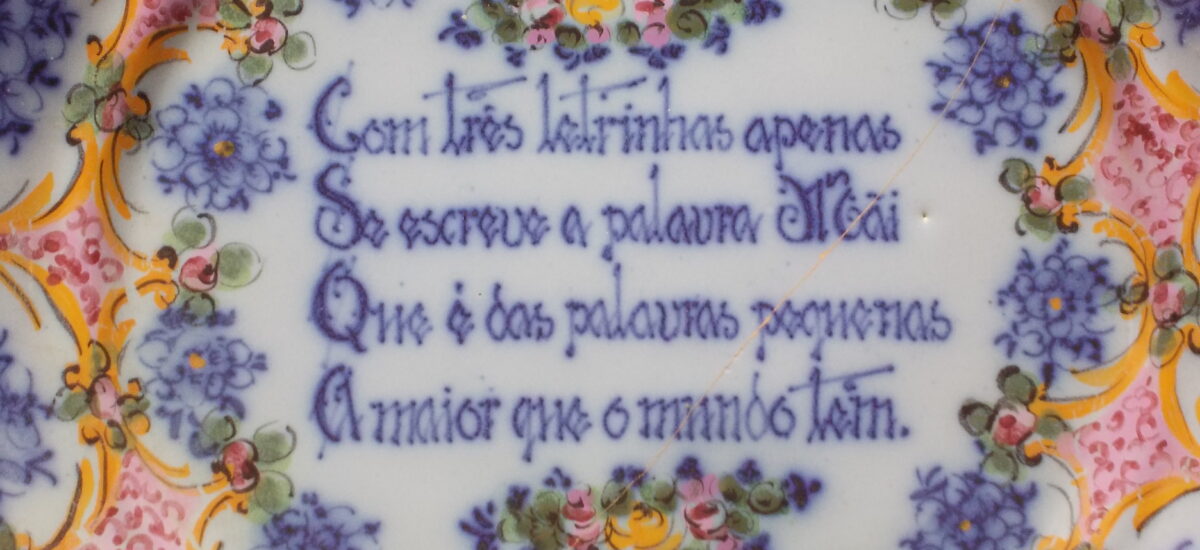 Com três letrinhas apenas
Se escreve a palavra Mãi
Que é das palavras pequenas
A maior que o mundo tem.